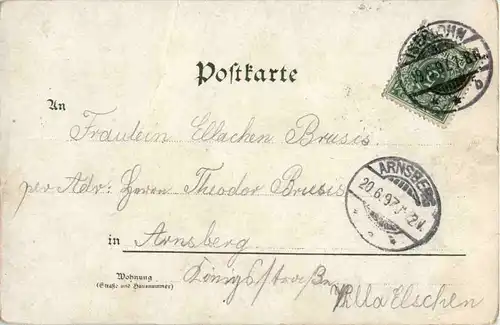 Postkarte
ISERLOHN
An
Fräulein Ellachen Brusis
per Adr: Herrn Theodor Brusis
ARNSBERG
20.6.97.
in Arnsberg
Wohnung
(Straße und Hausnummer)
Königsstraße
Villa Elschen